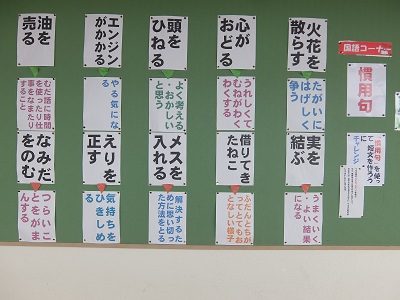 国語コーナー
慣用句
慣用句を使っ
て短文を作ろう
チャレンジ
火花を
散らす
たがいに
はげしく
争う
実を
結ぶ
うまくいく
・よい結果
になる
心が
おどる
うれしくて
むねがわく
わくする
借りてき
たねこ
ふだんとちが
ってとてもお
となしい様子
頭を
ひねる
よく考える
・おかしい
と思う
メスを
入れる
解決するた
めに思い切っ
た方法をとる
エンジン
がかかる
やる気にな
る
えりを
正す
気持ちを
ひきしめ
る
油を
売る
むだ話に時間
を使ったり仕
事をなまたり
すること
なみだ
をのむ
つらいこ
とをがま
んする